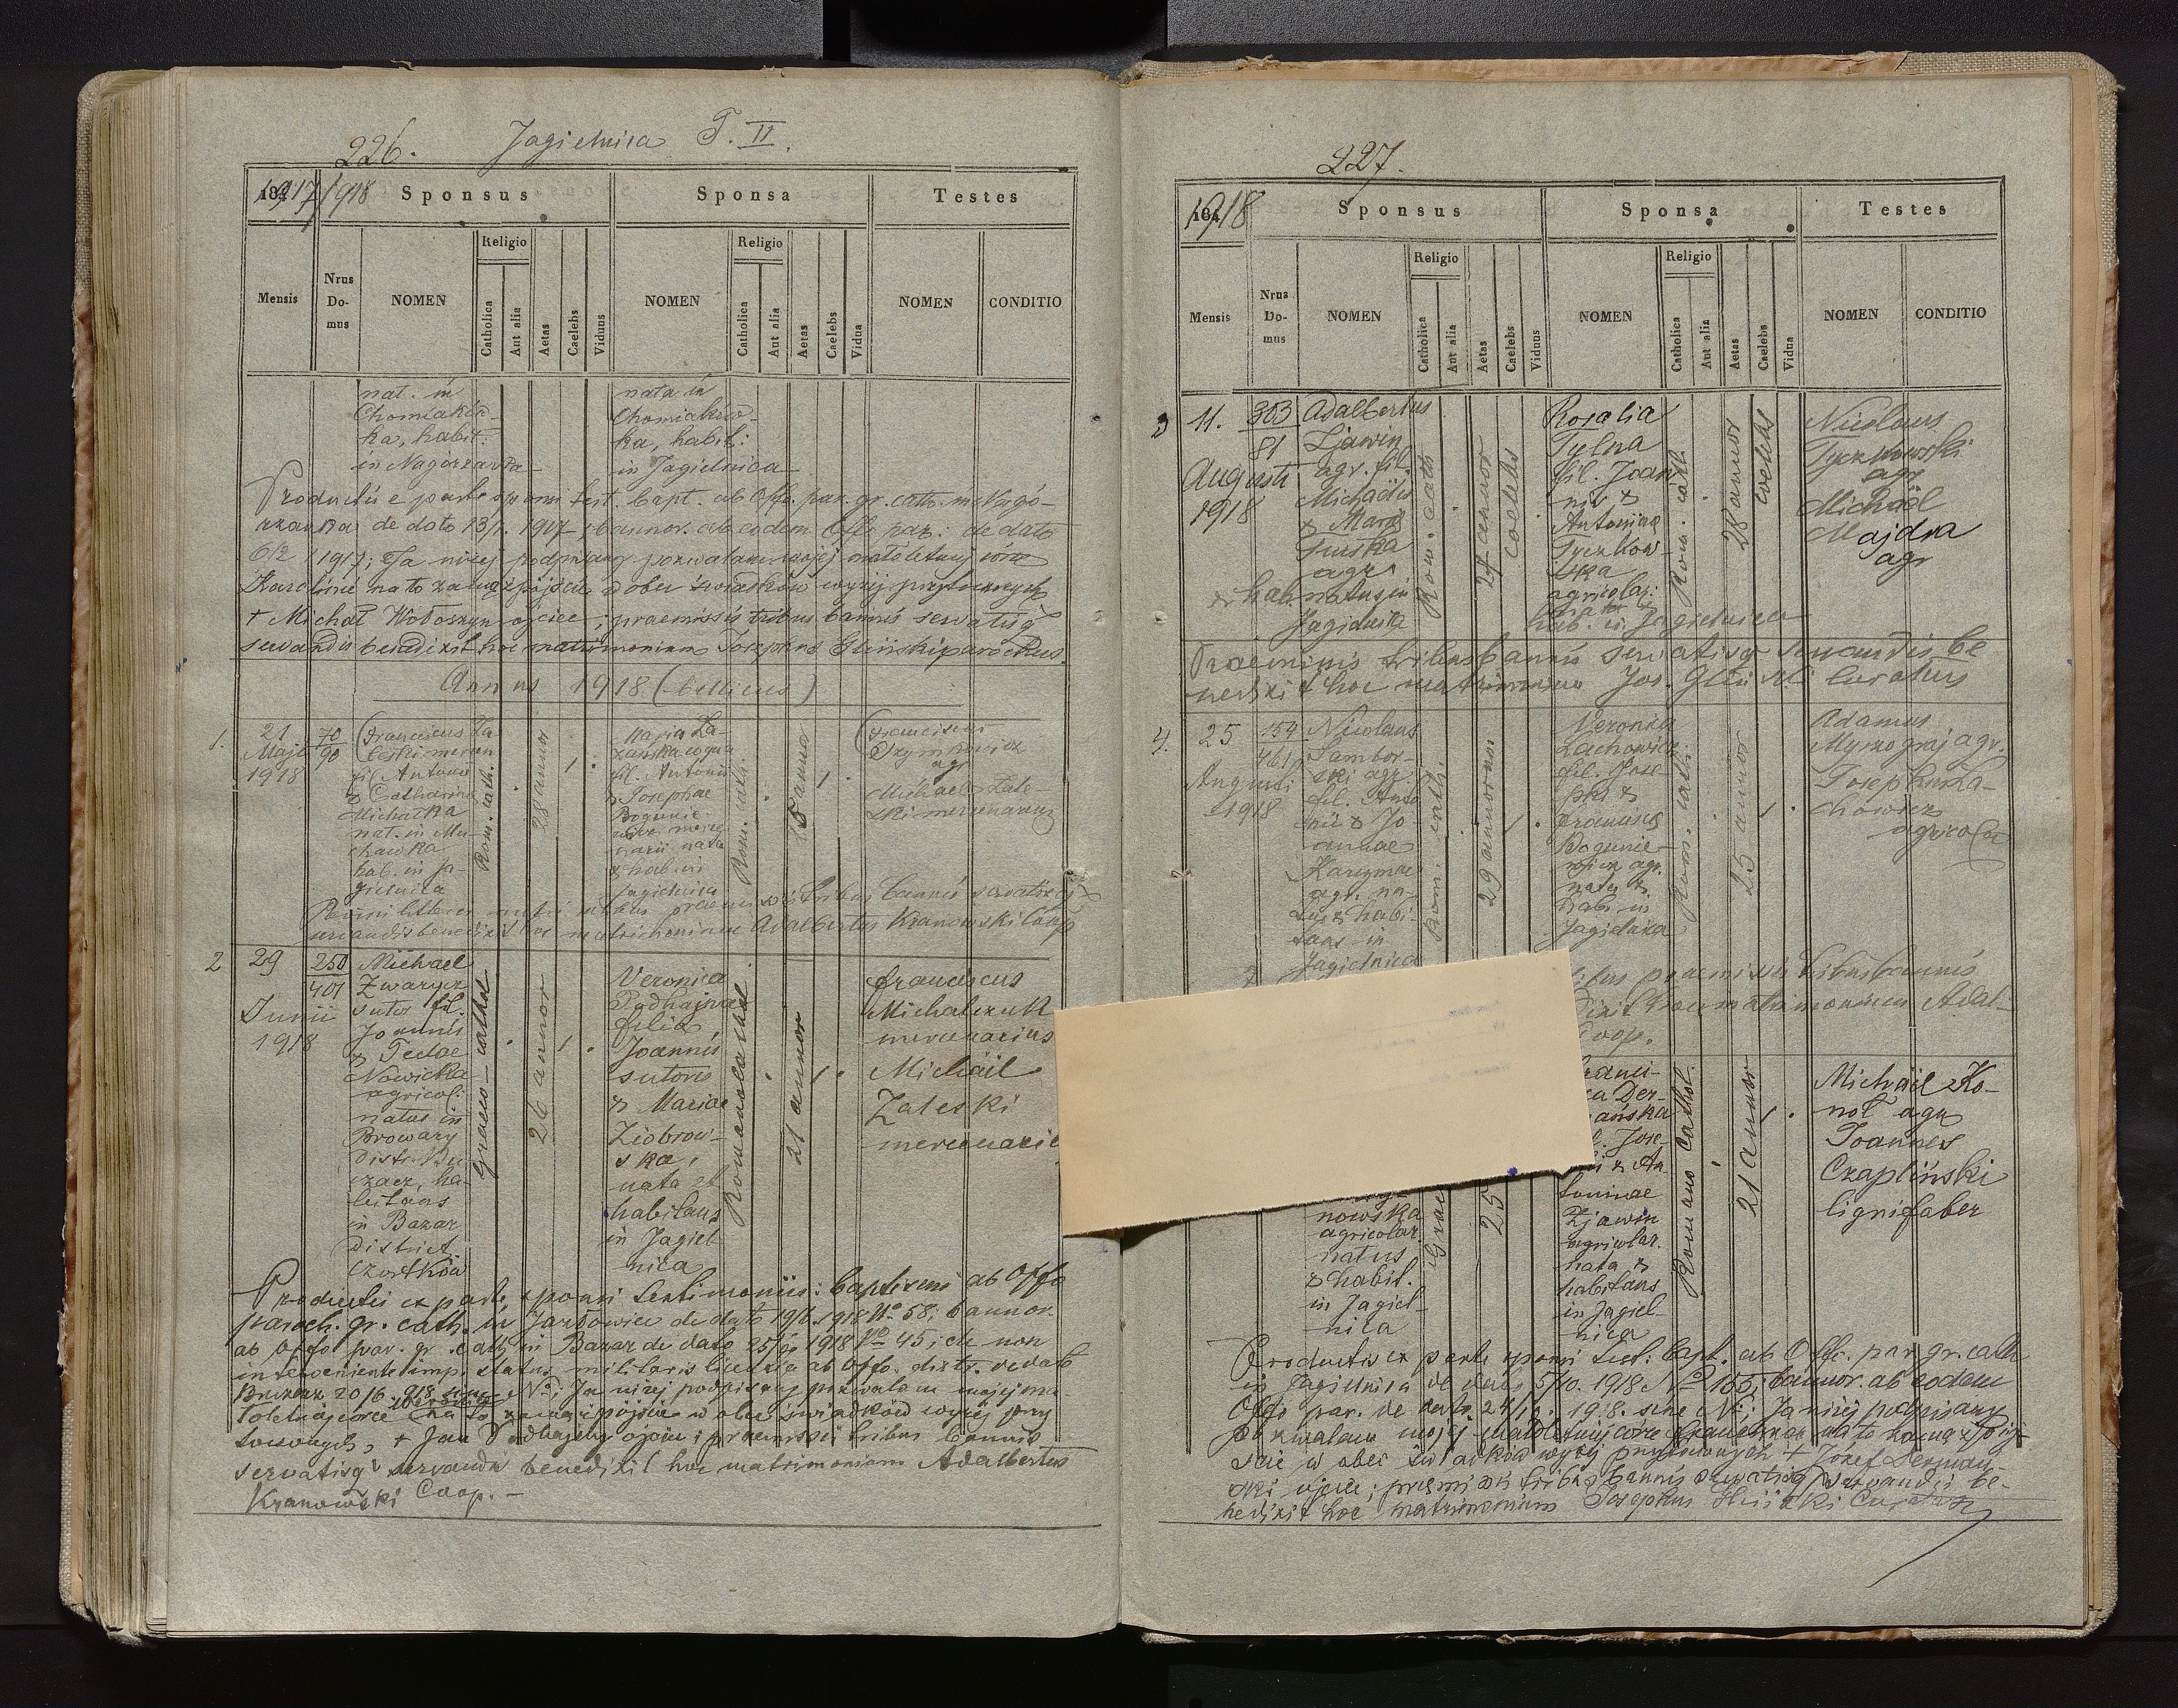 226. Jagielnica T. II.
1917/1918 Sponsus Sponsa Testes
Mensis Nrus Domus NOMEN Religio Catholica Aut alia Aetas Caelebs Viduus NOMEN Religio Catholica Aut alia Aetas Caelebs Vidua NOMEN CONDITIO
nat. in
Chomiaków-
ka, habit:
in Nagórzanka
nata in
Chomiaków-
ka, habit:
in Jagielnica
Productis e parte sponsi test. bapt. ab Offo. par. gr. cath. in Nagó-
rzanka de dato 13/1. 1917; bannor. ab eodem Offo par: de dato
6/2 1917; Ja niżej podpisany pozwalam mojej małoletniej córce
Karolinie na to zamążpójście w obec świadków wyżej przytoczonych
+ Michał Wołoszyn ojciec; praemissis tribus bannis servatisq
servandis benedixit hoc matrimonium Josephus Gliński parochus.
Annus 1918 (bellicus)
1.
21
Maji
1918
70
90
Franciscus Za-
leski mercen
fil Antonii
& Catharina
Michalka
nat. in Mu-
chawka
hab. in Ja-
gielnica
Rom. cath.
28 annor
1
Maria La-
fil. Antonii
& Josephae
Bogunie-
wicz merce-
narii nata
& hab. in
Jagielnica
Rom. cath.
annor
1
Franciscus
Szymkowicz
agr
Michael Zale-
ski mercenarius
praemissis tribus bannis servatisq
servandis benedixit hoc matrimonium Adalbertus Kranowski Coop
2
29
Junii
1918
250
401
Michael
Zwarycz
sutor fil.
Joannis
& Teclae
Nowicka
agricol:
natus in
Browary
distr. Bu-
czacz, ha-
bitans
in Bazar
district.
Czortków
Graeco-cathol
26 annor
1
Veronica
Podhajna
filia
Joannis
sutoris
& Mariae
Ziobrow-
ska,
nata et
habitans
in Jagiel
nica
Romano cathol
21 annor
1
Franciscus
Michalczuk
mercenarius
Michäil
Zaleski
mercenarii
Productis ex parte sponsi testimoniis: baptismi ab Offo
paroch. gr. cath. in Jazłowiec de dato 19/6. 1918 No 58; bannor.
ab Offo par. gr. cath in Bazar de dato 25/6 1918 No 45; de non
interveniente imp. status militaris licentia ab Offo. distr. de dato
Buczacz 20/6. 918 No; Ja niżej podpisany pozwalam mojej ma-
łoletniej córce Weronice na to zamążpójście w obec świadków wyżej przy
toczonych, + Jan Podhajny ojciec; praemissis tribus bannis
servatisq servandis benedixit hoc matrimonium Adalbertus
Kranowski Coop.
227.
1918 Sponsus Sponsa Testes
Mensis Nrus Domus NOMEN Religio Catholica Aut alia Aetas Caelebs Viduus NOMEN Religio Catholica Aut alia Aetas Caelebs Vidua NOMEN CONDITIO
3
11.
Augusti
1918
303
81
Adalbertus
Zjawin
agr. fil.
Michaëlis
& Maria
agr.
& hab. natus in
Jagielnica
Rom. cath
24 annor
coelebs
Rosalia
Tylna
fil. Joan-
nis &
Antonina
Tyczkow-
ska
agricolar:
nata &
hab. in Jagielnica
Rom. cath.
28 annor
coelebs
Nicolaus
Tyczkowski
agr
Michäel
Majdna
agr
Praemissis tribus bannis servatisq servandis be
nedixit hoc matrimonium Jos. Gliński Curatus
4.
25
Augusti
1918
154
461
Nicolaus
Sambor-
ski agr.
fil. Anto
nii & Jo-
annae
Karczmar
agr. na-
tus & habi-
tans in
Jagielnica
Rom. cath.
29 annorum
1
Veronica
Lachowicz
fil. Jose-
phi &
Francisca
Bogunie-
wicz agr.
nata &
hab. in
Jagielnica
Rom. cath.
25 annor
1
Adamus
agr.
Josephus La-
chowicz
agricolae
praemissis tribus bannis
dixit hoc matrimonium Adal-
Coop.
nowska
agricolar.
natus
& habit.
in Jagiel-
nica
25
Franci-
ca Der-
mańska
fil. Jose-
phi & An-
toninae
Zjawin
agricolar.
nata &
habitans
in Jagiel-
nica
Romano Cathol.
21 annor
1
Michäil Ko-
nol agr
Joannes
Czapliński
lignifaber
Productis ex parte sponsi test: bapt. ab Offo. par. gr. cath
in Jagielnica de dato 5/10. 1918 No 155; bannor. ab eodem
Offo par. de dato 24/10. 1918. sine No; Ja niżej podpisany
pozwalam mojej małoletniej córce Franciszce na to zamążpój-
ście w obec świadków wyżej przytoczonych + Józef Dermań-
ski ojciec; praemissis tribus bannis servatisq servandis be-
nedixit hoc matrimonium Josephus Gliński Curatus